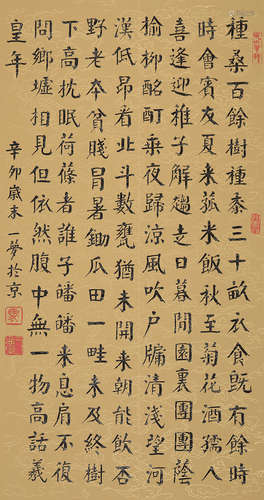 種桑百餘樹種黍三十畝衣食既有餘時
時會賓友夏来菰米飯秋至菊花酒孺人
喜逢迎稚子解趨走日暮閒園裏團團蔭
榆柳酩酊乘夜歸涼風吹户牖清淺望河
漢低昂看北斗數甕猶未開来朝能飲否
野老本貧賤冒暑鋤瓜田一畦未及終樹
下高枕眠荷蓧者誰子皤皤来息肩不復
問鄉墟相見但依然腹中無一物高話羲
皇年
辛卯歲末一夢於京